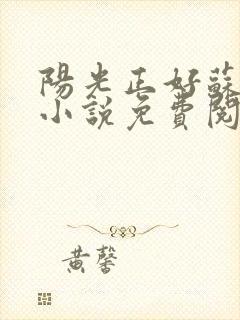 陽光正好蘇
小說免費閱
黃馨